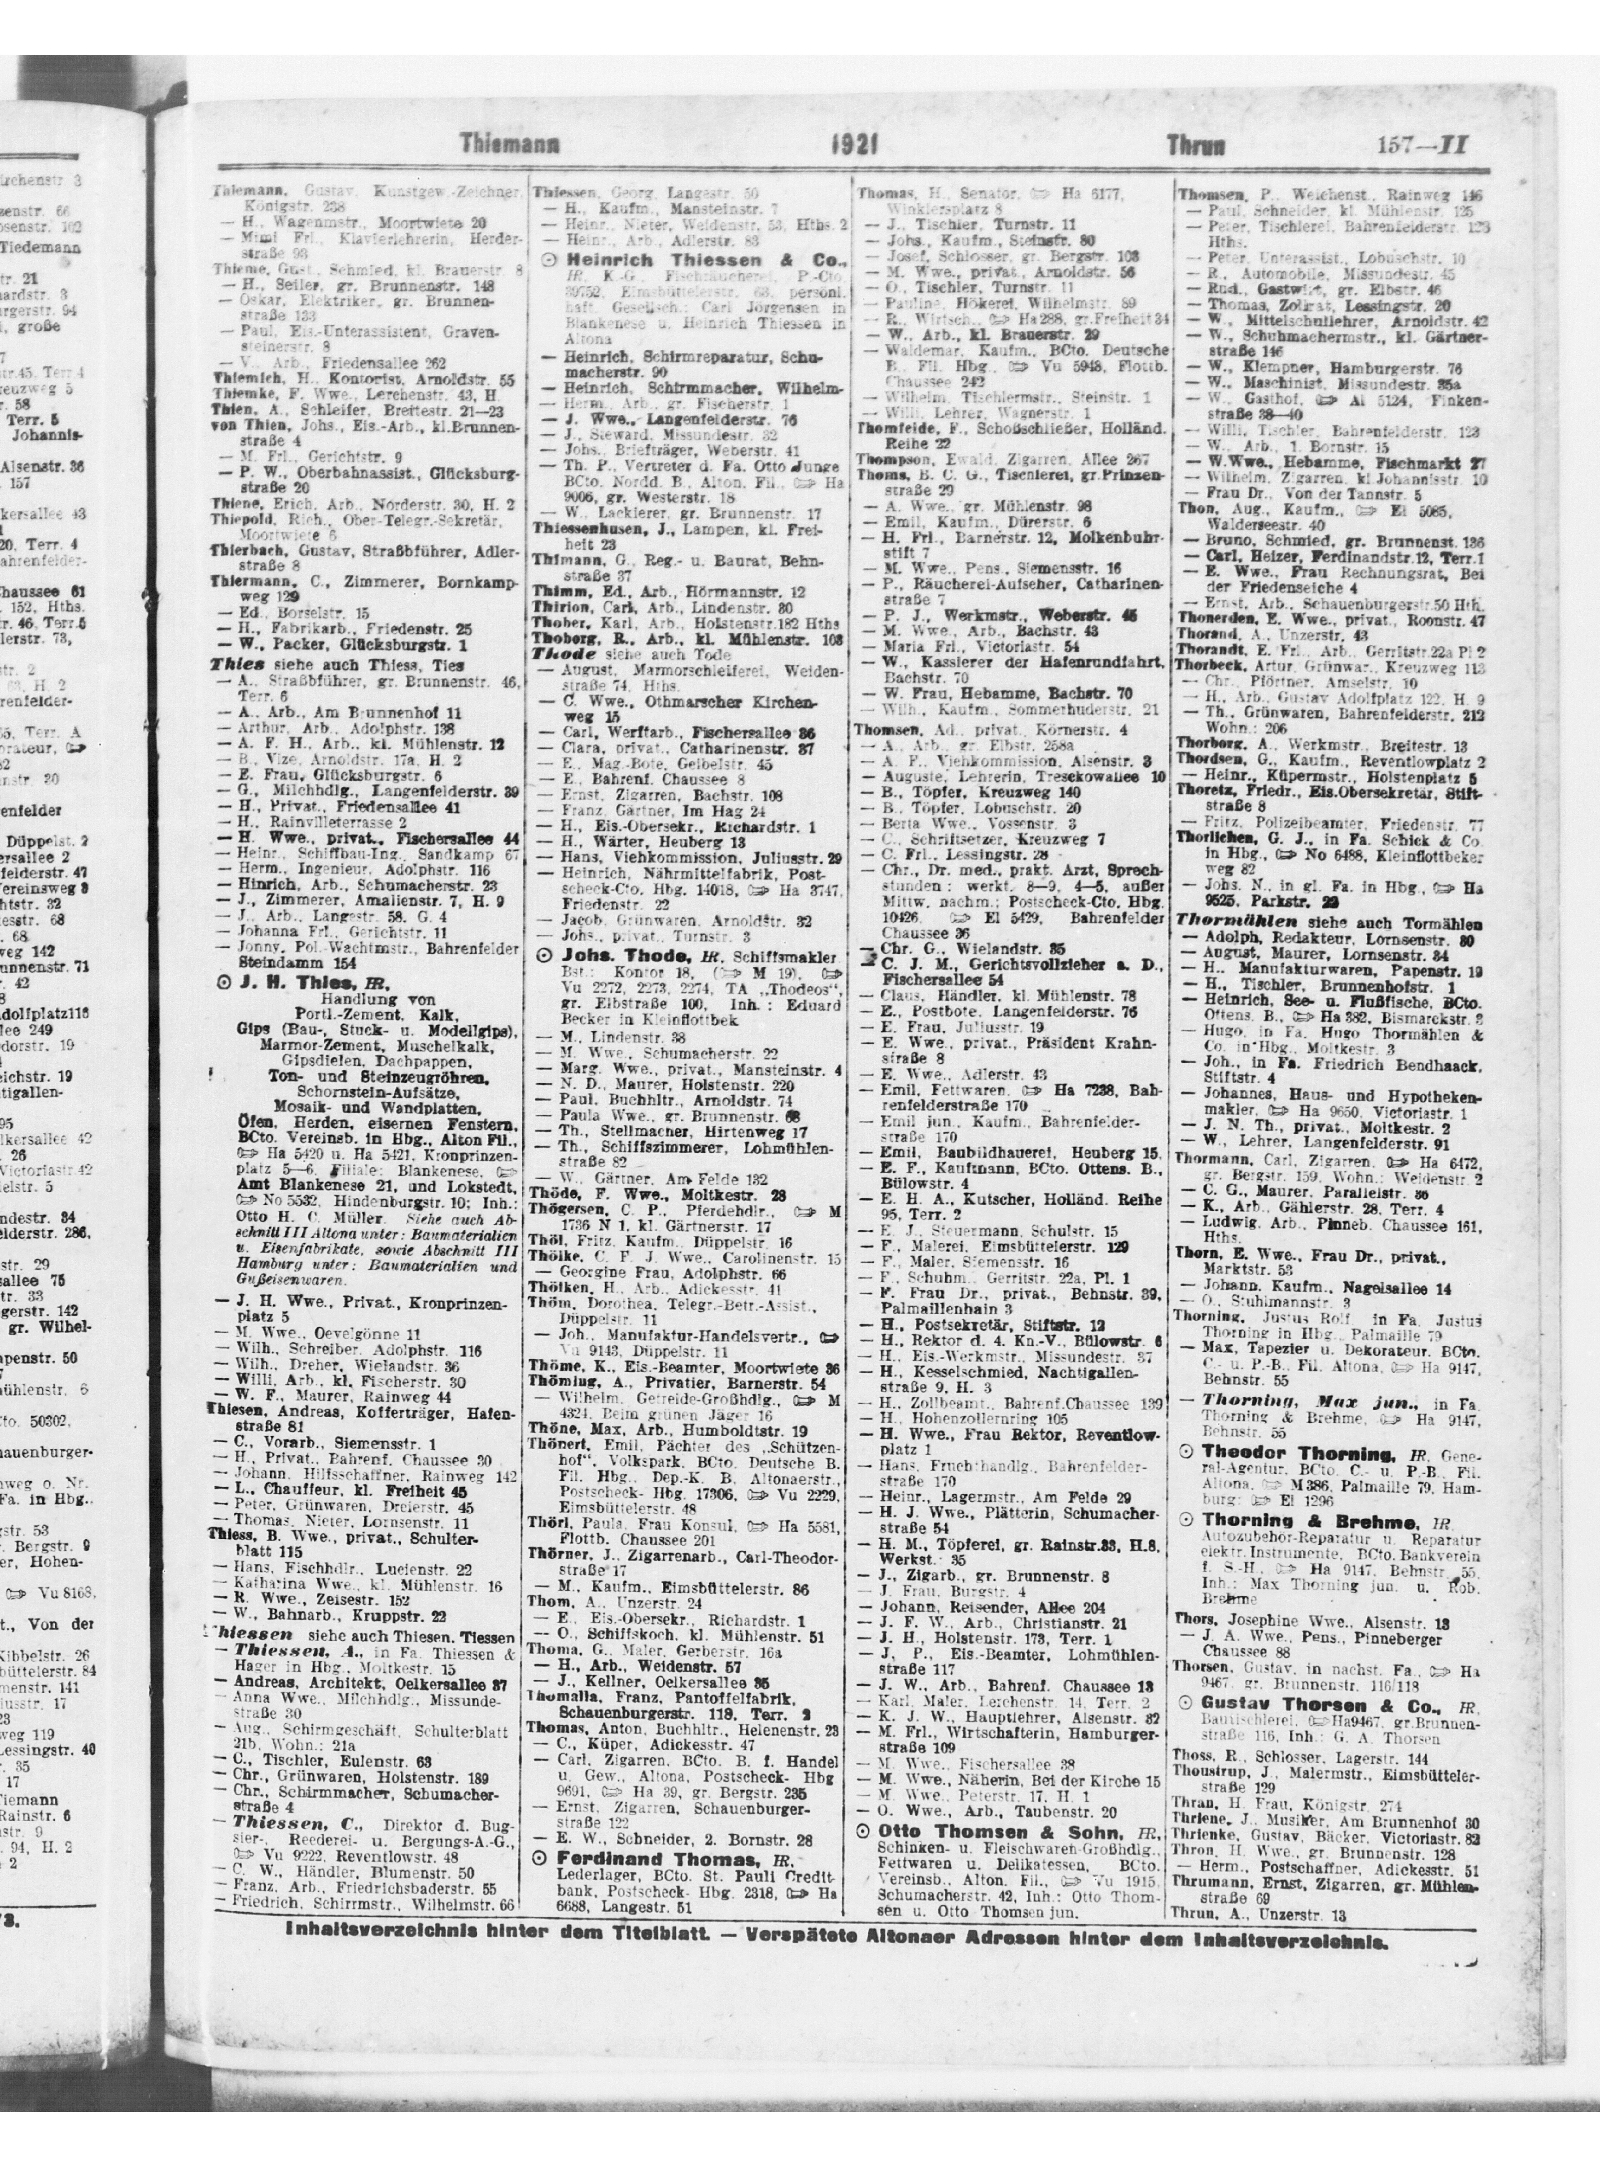 Thiemann 1921 Thrun 157—II
Thiemann, Gustav, Kunstgew.-Zeichner,
Königstr. 238
— H., Wagenmstr., Moortwiete 20
— Mimi Frl., Klavierlehrerin, Herder-
straße 93
Thieme, Gust., Schmied, kl. Brauerstr. 8
— H., Seiler, gr. Brunnenstr. 148
— Oskar, Elektriker, gr. Brunnen-
straße 133
— Paul, Eis.-Unterassistent, Graven-
steinerstr. 8
— V., Arb., Friedensallee 262
Thiemich, H., Kontorist, Arnoldstr. 55
Thiemke, F. Wwe., Lerchenstr. 43, H.
Thien, A., Schleifer, Breitestr. 21—23
von Thien, Johs., Eis.-Arb., kl.Brunnen-
straße 4
— M. Frl., Gerichtstr. 9
— P. W., Oberbahnassist., Glücksburg-
straße 20
Thiene, Erich, Arb., Norderstr. 30, H. 2
Thiepold, Rich., Ober-Telegr.-Sekretär,
Moortwiete 6
Thierbach, Gustav, Straßbführer, Adler-
straße 8
Thiermann, C., Zimmerer, Bornkamp-
weg 129
— Ed., Borselstr. 15
— H., Fabrikarb., Friedenstr. 25
— W., Packer, Glücksburgstr. 1
Thies siehe auch Thiess, Ties
— A., Straßbführer, gr. Brunnenstr. 46,
Terr. 6
— A., Arb., Am Brunnenhof 11
— Arthur, Arb., Adolphstr. 138
— A. F. H., Arb., kl. Mühlenstr. 12
— B., Vize, Arnoldstr. 17a, H. 2
— E. Frau, Glücksburgstr. 6
— G., Milchhdlg., Langenfelderstr. 39
— H., Privat., Friedensallee 41
— H., Rainvilleterrasse 2
— H. Wwe., privat., Fischersallee 44
— Heinr., Schiffbau-Ing., Sandkamp 67
— Herm., Ingenieur, Adolphstr. 116
— Hinrich, Arb., Schumacherstr. 23
— J., Zimmerer, Amalienstr. 7, H. 9
— J., Arb., Langestr. 58, G. 4
— Johanna Frl., Gerichtstr. 11
— Jonny, Pol.-Wachtmstr., Bahrenfelder
Steindamm 154
⊙ J. H. Thies, HR,
Handlung von
Portl.-Zement, Kalk,
Gips (Bau-, Stuck- u. Modellgips),
Marmor-Zement, Muschelkalk,
Gipsdielen, Dachpappen,
Ton- und Steinzeugröhren,
Schornstein-Aufsätze,
Mosaik- und Wandplatten,
Öfen, Herden, eisernen Fenstern,
BCto. Vereinsb. in Hbg., Alton Fil.,
Ha 5420 u. Ha 5421, Kronprinzen-
platz 5—6, Filiale: Blankenese,
Amt Blankenese 21, und Lokstedt,
No 5532, Hindenburgstr. 10; Inh.:
Otto H. C. Müller. Siehe auch Ab-
schnitt III Altona unter: Baumaterialien
u. Eisenfabrikate, sowie Abschnitt III
Hamburg unter: Baumaterialien und
Gußeisenwaren.
— J. H. Wwe., Privat., Kronprinzen-
platz 5
— M. Wwe., Oevelgönne 11
— Wilh., Schreiber, Adolphstr. 116
— Wilh., Dreher, Wielandstr. 36
— Willi, Arb., kl. Fischerstr. 30
— W. F., Maurer, Rainweg 44
Thiesen, Andreas, Kofferträger, Hafen-
straße 81
— C., Vorarb., Siemensstr. 1
— H., Privat., Bahrenf. Chaussee 30
— Johann, Hilfsschaffner, Rainweg 142
— L., Chauffeur, kl. Freiheit 45
— Peter, Grünwaren, Dreierstr. 45
— Thomas, Nieter, Lornsenstr. 11
Thiess, B. Wwe., privat., Schulter-
blatt 115
— Hans, Fischhdlr., Lucienstr. 22
— Katharina Wwe., kl. Mühlenstr. 16
— R. Wwe., Zeisestr. 152
— W., Bahnarb., Kruppstr. 22
Thiessen siehe auch Thiesen, Tiessen
— Thiessen, A., in Fa. Thiessen &
Hager in Hbg., Moltkestr. 15
— Andreas, Architekt, Oelkersallee 37
— Anna Wwe., Milchhdlg., Missunde-
straße 30
— Aug., Schirmgeschäft, Schulterblatt
21b, Wohn.: 21a
— C., Tischler, Eulenstr. 63
— Chr., Grünwaren, Holstenstr. 189
— Chr., Schirmmacher, Schumacher-
straße 4
— Thiessen, C., Direktor d. Bug-
sier-, Reederei- u. Bergungs-A.-G.,
Vu 9222, Reventlowstr. 48
— C. W., Händler, Blumenstr. 50
— Franz, Arb., Friedrichsbaderstr. 55
— Friedrich, Schirrmstr., Wilhelmstr. 66
Thiessen, Georg, Langestr. 50
— H., Kaufm., Mansteinstr. 7
— Heinr., Nieter, Weidenstr. 53, Hths. 2
— Heinr., Arb., Adlerstr. 83
⊙ Heinrich Thiessen & Co.,
HR, K.-G., Fischräucherei, P.-Cto.
39752, Eimsbüttelerstr. 63, persönl.
haft. Gesellsch.: Carl Jörgensen in
Blankenese u. Heinrich Thiessen in
Altona
— Heinrich, Schirmreparatur, Schu-
macherstr. 90
— Heinrich, Schirmmacher, Wilhelm-
— Herm., Arb., gr. Fischerstr. 1
— J. Wwe., Langenfelderstr. 76
— J., Steward, Missundestr. 32
— Johs., Briefträger, Weberstr. 41
— Th. P., Vertreter d. Fa. Otto Junge
BCto. Nordd. B., Alton. Fil., Ha
9006, gr. Westerstr. 18
— W., Lackierer, gr. Brunnenstr. 17
Thiessenhusen, J., Lampen, kl. Frei-
heit 23
Thimann, G., Reg.- u. Baurat, Behn-
straße 37
Thimm, Ed., Arb., Hörmannstr. 12
Thirion, Carl, Arb., Lindenstr. 30
Thober, Karl, Arb., Holstenstr.182 Hths
Thoborg, R., Arb., kl. Mühlenstr. 103
Thode siehe auch Tode
— August, Marmorschleiferei, Weiden-
straße 74, Hths.
— C. Wwe., Othmarscher Kirchen-
weg 15
— Carl, Werftarb., Fischersallee 86
— Clara, privat., Catharinenstr. 37
— E., Mag.-Bote, Geibelstr. 45
— E., Bahrenf. Chaussee 8
— Ernst, Zigarren, Bachstr. 108
— Franz, Gärtner, Im Hag 24
— H., Eis.-Obersekr., Richardstr. 1
— H., Wärter, Heuberg 13
— Hans, Viehkommission, Juliusstr. 29
— Heinrich, Nährmittelfabrik, Post-
scheck-Cto. Hbg. 14018, Ha 3747,
Friedenstr. 22
— Jacob, Grünwaren, Arnoldstr. 32
— Johs., privat., Turnstr. 3
⊙ Johs. Thode, HR, Schiffsmakler
Bst.: Kontor 18, ( M 19),
Vu 2272, 2273, 2274, TA „Thodeos“,
gr. Elbstraße 100, Inh.: Eduard
Becker in Kleinflottbek
— M., Lindenstr. 38
— M. Wwe., Schumacherstr. 22
— Marg. Wwe., privat., Mansteinstr. 4
— N. D., Maurer, Holstenstr. 220
— Paul, Buchhltr., Arnoldstr. 74
— Paula Wwe., gr. Brunnenstr. 68
— Th., Stellmacher, Hirtenweg 17
— Th., Schiffszimmerer, Lohmühlen-
straße 82
— W., Gärtner, Am Felde 132
Thöde, F. Wwe., Moltkestr. 28
Thögersen, C. P., Pferdehdlr., M
1736 N 1, kl. Gärtnerstr. 17
Thöl, Fritz, Kaufm., Düppelstr. 16
Thölke, C. F. J. Wwe., Carolinenstr. 15
— Georgine Frau, Adolphstr. 66
Thölken, H., Arb., Adickesstr. 41
Thöm, Dorothea, Telegr.-Betr.-Assist.,
Düppelstr. 11
— Joh., Manufaktur-Handelsvertr.,
Vu 9143, Düppelstr. 11
Thöme, K., Eis.-Beamter, Moortwiete 36
Thöming, A., Privatier, Barnerstr. 54
— Wilhelm, Getreide-Großhdlg., M
4324, Beim grünen Jäger 16
Thöne, Max, Arb., Humboldtstr. 19
Thönert, Emil, Pächter des „Schützen-
hof“, Volkspark, BCto. Deutsche B.
Fil. Hbg., Dep.-K. B, Altonaerstr.,
Postscheck- Hbg. 17306, Vu 2229,
Eimsbüttelerstr. 48
Thörl, Paula, Frau Konsul, Ha 5581,
Flottb. Chaussee 201
Thörner, J., Zigarrenarb., Carl-Theodor-
straße 17
— M., Kaufm., Eimsbüttelerstr. 86
Thom, A., Unzerstr. 24
— E., Eis.-Obersekr., Richardstr. 1
— O., Schiffskoch, kl. Mühlenstr. 51
Thoma, G., Maler, Gerberstr. 16a
— H., Arb., Weidenstr. 57
— J., Kellner, Oelkersallee 35
Thomalla, Franz, Pantoffelfabrik,
Schauenburgerstr. 118, Terr. 2
Thomas, Anton, Buchhltr., Helenenstr. 23
— C., Küper, Adickesstr. 47
— Carl, Zigarren, BCto. B. f. Handel
u. Gew., Altona, Postscheck- Hbg
9691, Ha 39, gr. Bergstr. 235
— Ernst, Zigarren, Schauenburger-
straße 122
— E. W., Schneider, 2. Bornstr. 28
⊙ Ferdinand Thomas, HR,
Lederlager, BCto. St. Pauli Credit-
bank, Postscheck- Hbg. 2318, Ha
6688, Langestr. 51
Thomas, H., Senator, Ha 6177,
Winklersplatz 8
— J., Tischler, Turnstr. 11
— Johs., Kaufm., Steinstr. 80
— Josef, Schlosser, gr. Bergstr. 103
— M. Wwe., privat., Arnoldstr. 56
— O., Tischler, Turnstr. 11
— Pauline, Hökerei, Wilhelmstr. 89
— R., Wirtsch., Ha 288, gr.Freiheit 34
— W., Arb., kl. Brauerstr. 29
— Waldemar, Kaufm., BCto. Deutsche
B. Fil. Hbg., Vu 5948, Flottb.
Chaussee 242
— Wilhelm, Tischlermstr., Steinstr. 1
— Willi, Lehrer, Wagnerstr. 1
Thomfelde, F., Schoßschließer, Holländ.
Reihe 22
Thompson, Ewald, Zigarren, Allee 267
Thoms, B. C. G., Tischlerei, gr.Prinzen-
straße 29
— A. Wwe., gr. Mühlenstr. 98
— Emil, Kaufm., Dürerstr. 6
— H. Frl., Barnerstr. 12, Molkenbuhr-
stift 7
— M. Wwe., Pens., Siemensstr. 16
— P., Räucherei-Aufseher, Catharinen-
straße 7
— P. J., Werkmstr., Weberstr. 45
— M. Wwe., Arb., Bachstr. 43
— Maria Frl., Victoriastr. 54
— W., Kassierer der Hafenrundfahrt,
Bachstr. 70
— W. Frau, Hebamme, Bachstr. 70
— Wilh., Kaufm., Sommerhuderstr. 21
Thomsen, Ad., privat., Körnerstr. 4
— A., Arb., gr. Elbstr. 258a
— A. F., Viehkommission, Alsenstr. 3
— Auguste, Lehrerin, Tresckowallee 10
— B., Töpfer, Kreuzweg 140
— B., Töpfer, Lobuschstr. 20
— Berta Wwe., Vossenstr. 3
— C., Schriftsetzer, Kreuzweg 7
— C. Frl., Lessingstr. 28
— Chr., Dr. med., prakt. Arzt, Sprech-
stunden: werkt. 8—9, 4—5, außer
Mittw. nachm.; Postscheck-Cto. Hbg.
10426, El 5429, Bahrenfelder
Chaussee 36
— Chr. G., Wielandstr. 35
— C. J. M., Gerichtsvollzieher a. D.,
Fischersallee 54
— Claus, Händler, kl. Mühlenstr. 78
— E., Postbote, Langenfelderstr. 76
— E. Frau, Juliusstr. 19
— E. Wwe., privat., Präsident Krahn-
straße 8
— E. Wwe., Adlerstr. 43
— Emil, Fettwaren, Ha 7238, Bah-
renfelderstraße 170
— Emil jun., Kaufm., Bahrenfelder-
straße 170
— Emil, Baubildhauerei, Heuberg 15,
— E. F., Kaufmann, BCto. Ottens. B.,
Bülowstr. 4
— E. H. A., Kutscher, Holländ. Reihe
95, Terr. 2
— E. J., Steuermann, Schulstr. 15
— F., Malerei, Eimsbüttelerstr. 129
— F., Maler, Siemensstr. 16
— F., Schuhm., Gerritstr. 22a, Pl. 1
— F. Frau Dr., privat., Behnstr. 39,
Palmaillenhain 3
— H., Postsekretär, Stiftstr. 12
— H., Rektor d. 4. Kn.-V., Bülowstr. 6
— H., Eis.-Werkmstr., Missundestr. 37
— H., Kesselschmied, Nachtigallen-
straße 9, H. 3
— H., Zollbeamt., Bahrenf.Chaussee 139
— H., Hohenzollernring 105
— H. Wwe., Frau Rektor, Reventlow-
platz 1
— Hans, Fruchthandlg., Bahrenfelder-
straße 170
— Heinr., Lagermstr., Am Felde 29
— H. J. Wwe., Plätterin, Schumacher-
straße 54
— H. M., Töpferei, gr. Rainstr.33, H.8,
Werkst.: 35
— J., Zigarb., gr. Brunnenstr. 8
— J. Frau, Burgstr. 4
— Johann, Reisender, Allee 204
— J. F. W., Arb., Christianstr. 21
— J. H., Holstenstr. 173, Terr. 1
— J. P., Eis.-Beamter, Lohmühlen-
straße 117
— J. W., Arb., Bahrenf. Chaussee 13
— Karl, Maler, Lerchenstr. 14, Terr. 2
— K. J. W., Hauptlehrer, Alsenstr. 32
— M. Frl., Wirtschafterin, Hamburger-
straße 109
— M. Wwe., Fischersallee 38
— M. Wwe., Näherin, Bei der Kirche 15
— M. Wwe., Peterstr. 17, H. 1
— O. Wwe., Arb., Taubenstr. 20
⊙ Otto Thomsen & Sohn, HR,
Schinken- u. Fleischwaren-Großhdlg.,
Fettwaren u. Delikatessen, BCto.
Vereinsb., Alton. Fil., Vu 1915,
Schumacherstr. 42, Inh.: Otto Thom-
sen u. Otto Thomsen jun.
Thomsen, P., Weichenst., Rainweg 146
— Paul, Schneider, kl. Mühlenstr. 125
— Peter, Tischlerei, Bahrenfelderstr. 123
Hths.
— Peter, Unterassist., Lobuschstr. 10
— R., Automobile, Missundestr. 45
— Rud., Gastwirt, gr. Elbstr. 46
— Thomas, Zollrat, Lessingstr. 20
— W., Mittelschullehrer, Arnoldstr. 42
— W., Schuhmachermstr., kl. Gärtner-
straße 146
— W., Klempner, Hamburgerstr. 76
— W., Maschinist, Missundestr. 35a
— W., Gasthof, Al 5124, Finken-
straße 38—40
— Willi, Tischler, Bahrenfelderstr. 123
— W., Arb., 1. Bornstr. 15
— W.Wwe., Hebamme, Fischmarkt 27
— Wilhelm, Zigarren, kl.Johannisstr. 10
— Frau Dr., Von der Tannstr. 5
Thon, Aug., Kaufm., El 5085,
Walderseestr. 40
— Bruno, Schmied, gr. Brunnenst. 136
— Carl, Heizer, Ferdinandstr.12, Terr.1
— E. Wwe., Frau Rechnungsrat, Bei
der Friedenseiche 4
— Ernst, Arb., Schauenburgerstr.50 Hth.
Thonerden, E. Wwe., privat., Roonstr. 47
Thorand, A., Unzerstr. 43
Thorandt, E. Frl., Arb., Gerritstr.22a Pl 2
Thorbeck, Artur, Grünwar., Kreuzweg 113
— Chr., Pförtner, Amselstr. 10
— H., Arb., Gustav Adolfplatz 122, H. 9
— Th., Grünwaren, Bahrenfelderstr. 212
Wohn.: 206
Thorborg, A., Werkmstr., Breitestr. 13
Thordsen, G., Kaufm., Reventlowplatz 2
— Heinr., Küpermstr., Holstenplatz 5
Thoretz, Friedr., Eis.Obersekretär, Stift-
straße 8
— Fritz, Polizeibeamter, Friedenstr. 77
Thorlichen, G. J., in Fa. Schick & Co.
in Hbg., No 6488, Kleinflottbeker
weg 82
— Johs. N., in gl. Fa. in Hbg., Ha
9525, Parkstr. 22
Thormühlen siehe auch Tormählen
— Adolph, Redakteur, Lornsenstr. 80
— August, Maurer, Lornsenstr. 34
— H., Manufakturwaren, Papenstr. 19
— H., Tischler, Brunnenhofstr. 1
— Heinrich, See- u. Flußfische, BCto.
Ottens. B., Ha 382, Bismarckstr. 3
— Hugo, in Fa. Hugo Thormählen &
Co. in Hbg., Moltkestr. 3
— Joh., in Fa. Friedrich Bendhaack,
Stiftstr. 4
— Johannes, Haus- und Hypotheken-
makler, Ha 9650, Victoriastr. 1
— J. N. Th., privat., Moltkestr. 2
— W., Lehrer, Langenfelderstr. 91
Thormann, Carl, Zigarren, Ha 6472,
gr. Bergstr. 159, Wohn.: Weidenstr. 2
— C. G., Maurer, Parallelstr. 36
— K., Arb., Gählerstr. 28, Terr. 4
— Ludwig, Arb., Pinneb. Chaussee 161,
Hths.
Thorn, E. Wwe., Frau Dr., privat.,
Marktstr. 53
— Johann, Kaufm., Nagelsallee 14
— O., Stuhlmannstr. 3
Thorning, Justus Rolf, in Fa. Justus
Thorning in Hbg., Palmaille 79
— Max, Tapezier u. Dekorateur, BCto.
C.- u. P.-B., Fil. Altona, Ha 9147,
Behnstr. 55
— Thorning, Max jun., in Fa.
Thorning & Brehme, Ha 9147,
Behnstr. 55
⊙ Theodor Thorning, HR, Gene-
ral-Agentur, BCto. C.- u. P.-B., Fil.
Altona, M 386, Palmaille 79, Ham-
burg: El 1296
⊙ Thorning & Brehme, HR,
Autozubehör-Reparatur u. Reparatur
elektr. Instrumente, BCto. Bankverein
f. S.-H., Ha 9147, Behnstr. 55,
Inh.: Max Thorning jun. u. Rob.
Brehme
Thors, Josephine Wwe., Alsenstr. 13
— J. A. Wwe., Pens., Pinneberger
Chaussee 88
Thorsen, Gustav, in nachst. Fa., Ha
9467, gr. Brunnenstr. 116/118
⊙ Gustav Thorsen & Co., HR,
Bautischlerei, Ha9467, gr.Brunnen-
straße 116, Inh.: G. A. Thorsen
Thoss, R., Schlosser, Lagerstr. 144
Thoustrup, J., Malermstr., Eimsbütteler-
straße 129
Thran, H. Frau, Königstr. 274
Thriene, J., Musiker, Am Brunnenhof 30
Thrienke, Gustav, Bäcker, Victoriastr. 82
Thron, H. Wwe., gr. Brunnenstr. 128
— Herm., Postschaffner, Adickesstr. 51
Thrumann, Ernst, Zigarren, gr. Mühlen-
straße 69
Thrun, A., Unzerstr. 13
Inhaltsverzeichnis hinter dem Titelblatt. — Verspätete Altonaer Adressen hinter dem Inhaltsverzeichnis.